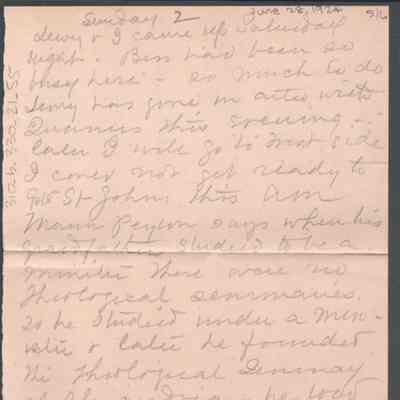 Sunday 2 June 28, 1924
Dewy & I came up Saturday
night. Bess had been so
busy here - so much to do
Dewy has gone in auto with
this evening -
Later I will go to West side
I could not get ready to
go to St Johns this am
Mann Peyton says when his
grandfather studied to be a
minister there were no
theological seminaries.
so he studied under a min-
ister & later he founded
the Theological Seminary
at he was